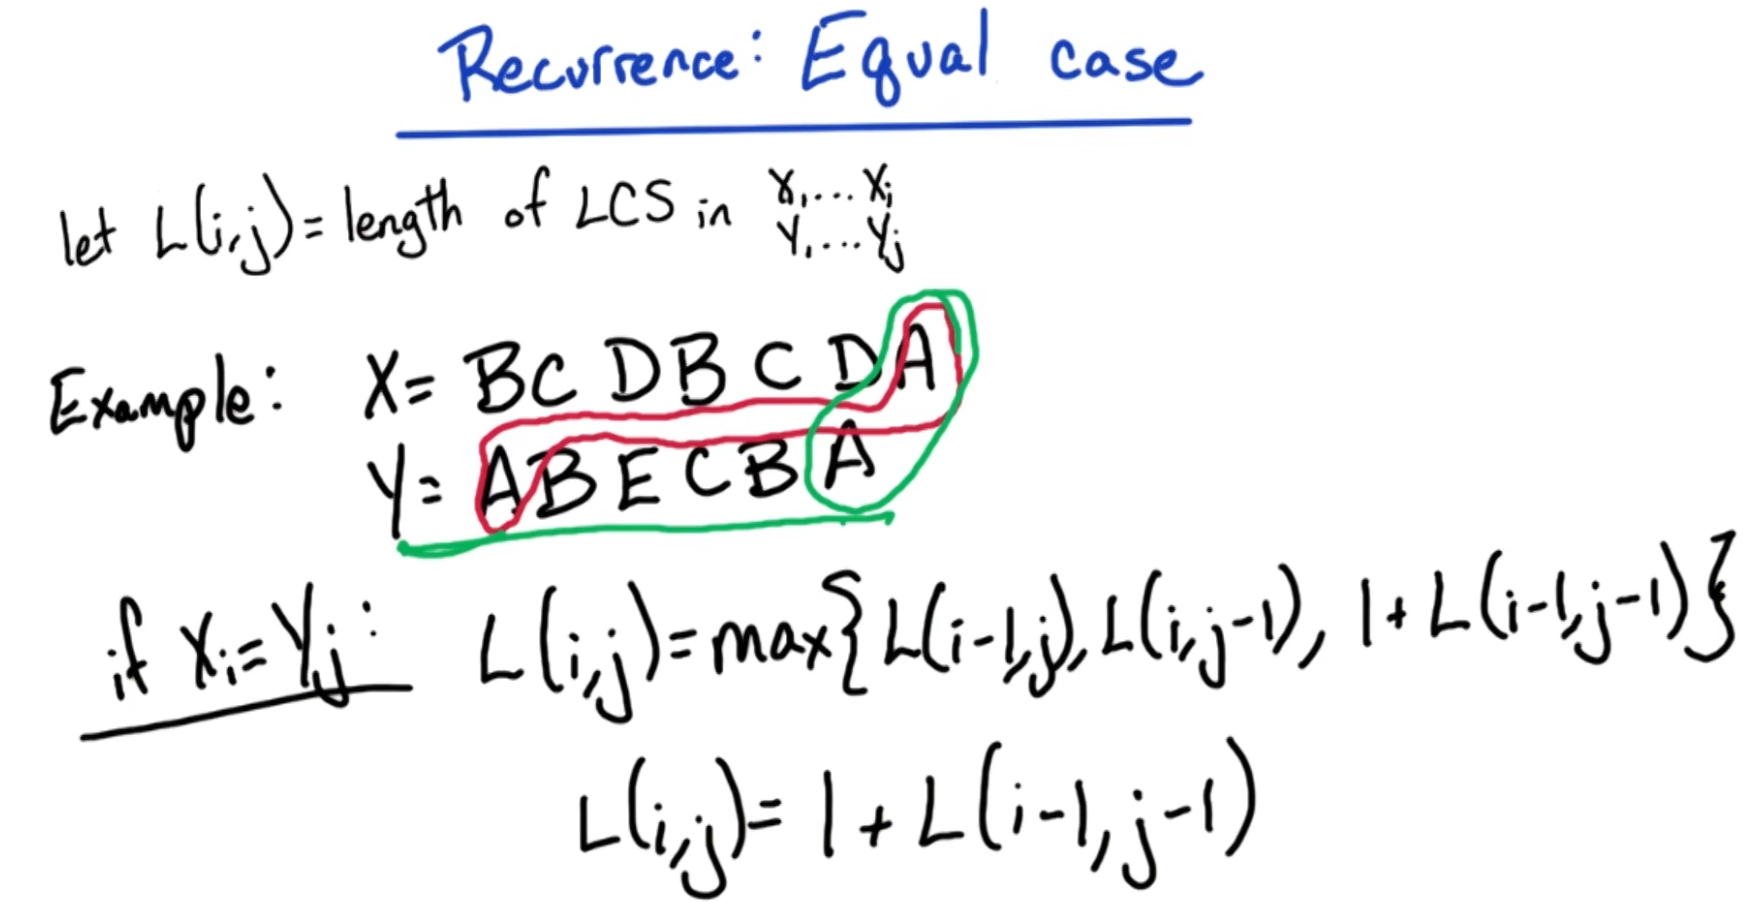 Recurrence: Equal case
let L(i,j) = length of LCS in X₁...Xᵢ
Y₁...Yⱼ
Example: X = BCDBCDA
Y = ABECBA
if Xᵢ = Yⱼ: L(i,j) = max{L(i-1,j), L(i,j-1), 1 + L(i-1,j-1)}
L(i,j) = 1 + L(i-1, j-1)